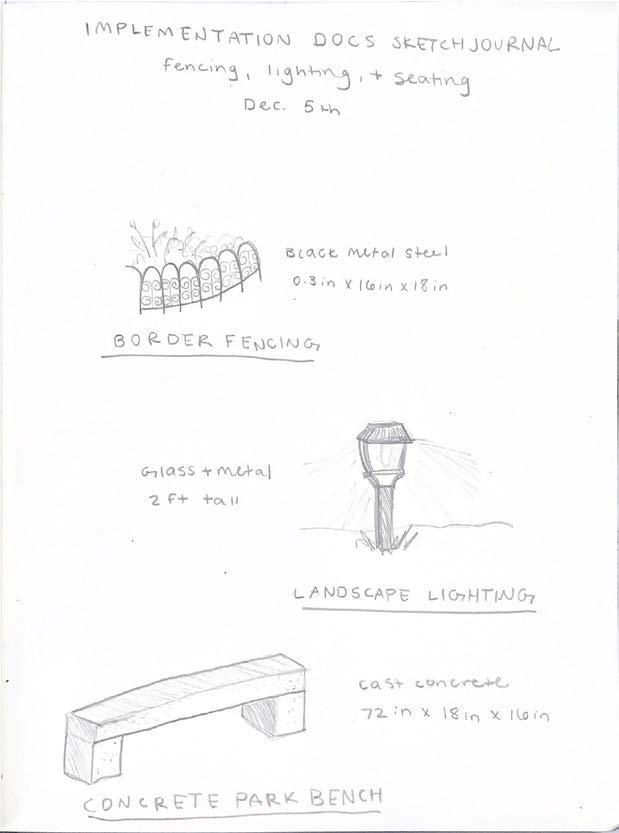 IMPLEMENTATION DOCS SKETCHJOURNAL
fencing, lighting, + seating
Dec. 5th
Black metal steel
0.3in x 16in x 18in
BORDER FENCING
Glass + metal
2 ft tall
LANDSCAPE LIGHTING
cast concrete
72in x 18in x 16in
CONCRETE PARK BENCH